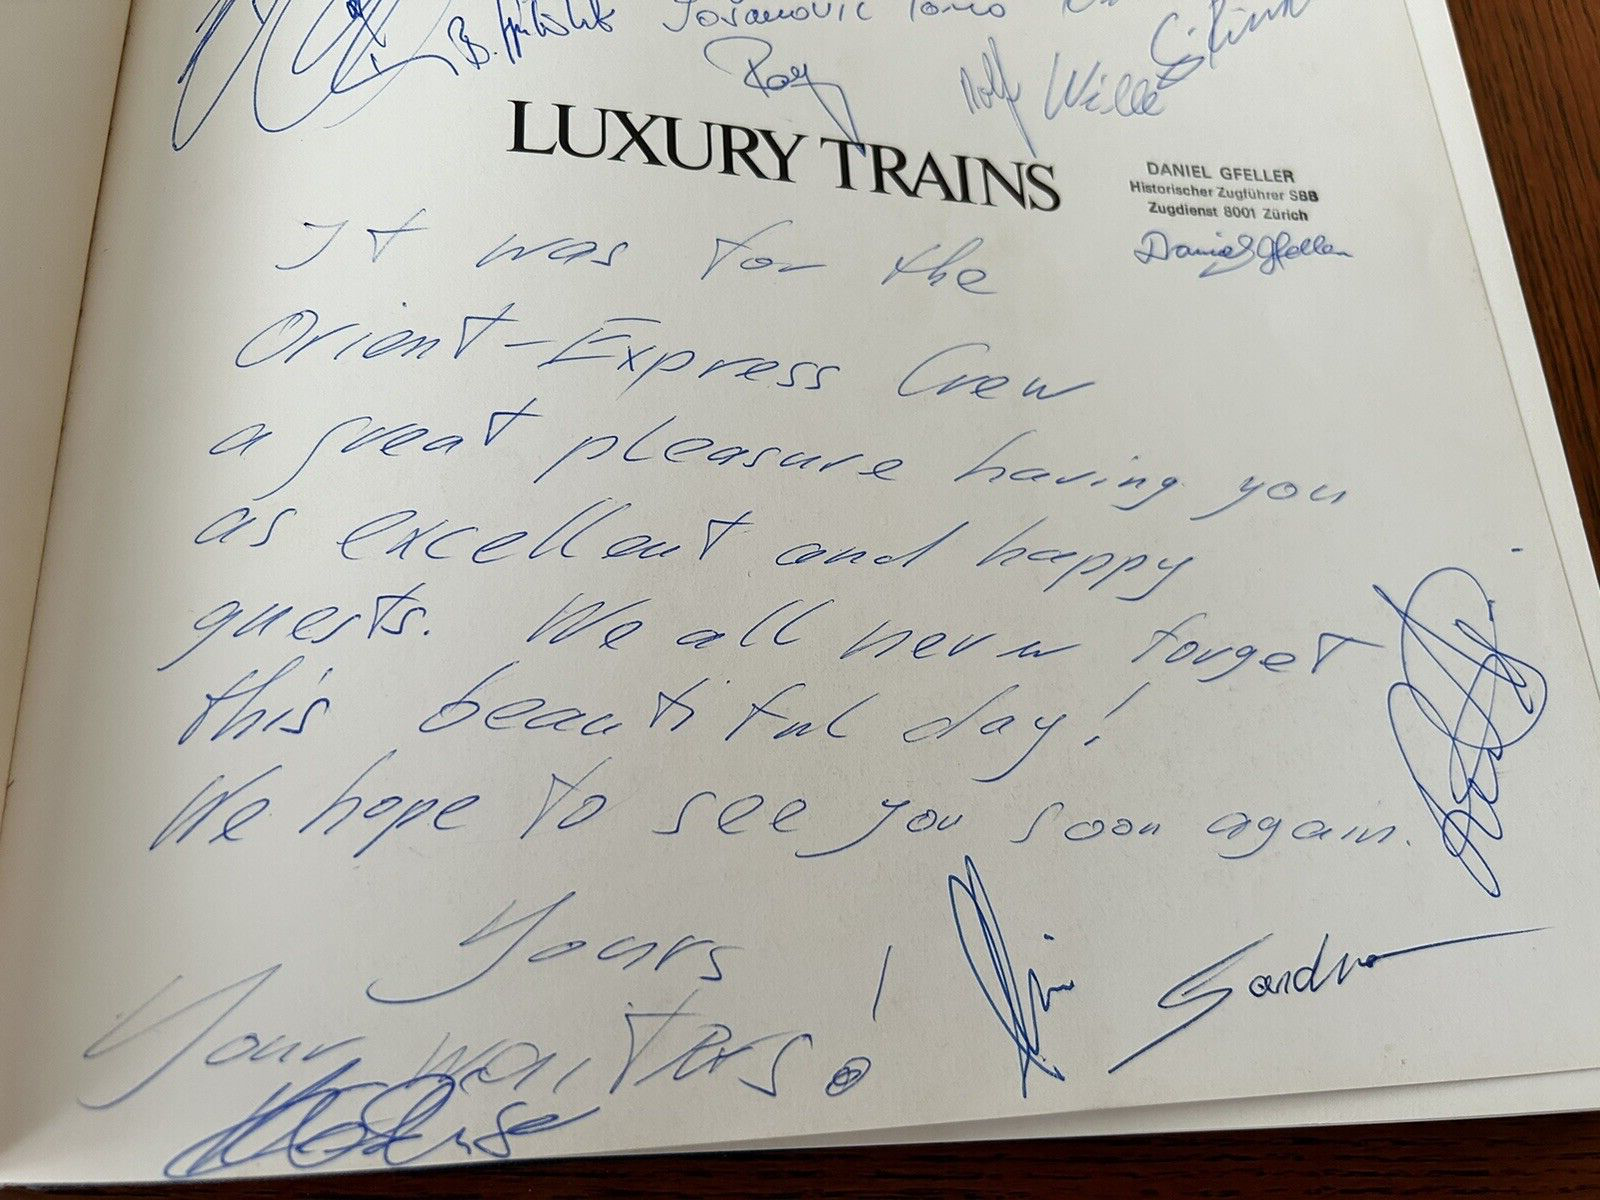 Jovanovic
Roy
Rolf Wille
LUXURY TRAINS
DANIEL GFELLER
Historischer Zugführer SBB
Zugdienst 8001 Zürich
Daniel Gfeller
It was for the
Orient-Express Crew
a great pleasure having you
as excellent and happy
guests. We all never forget
this beautiful day!
We hope to see you soon again.
Yours
Your waiters!
Sandra